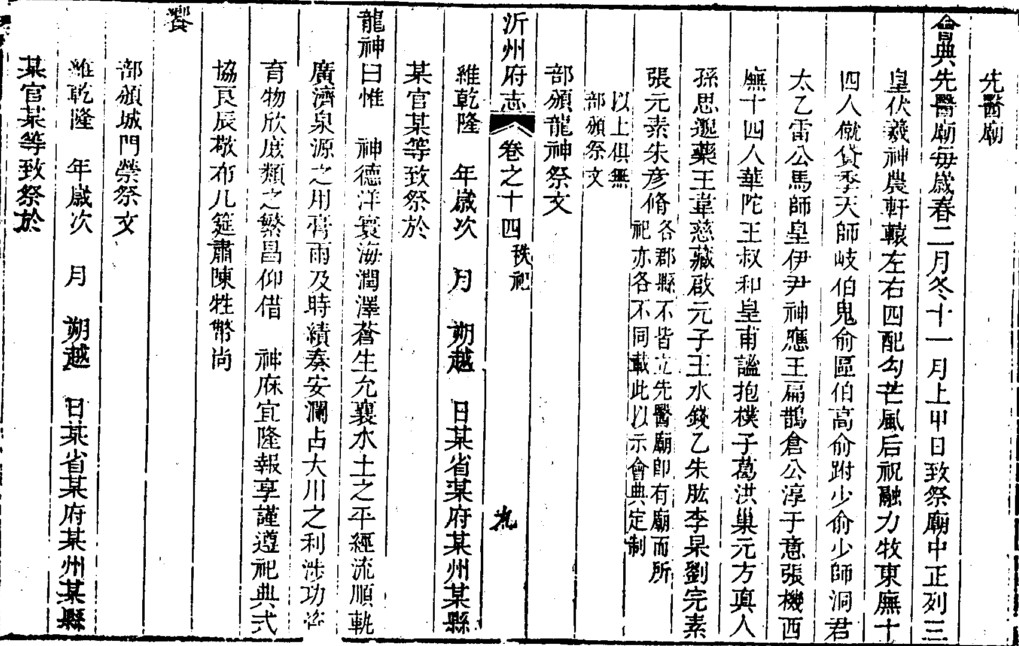 先醫廟
會典先醫廟每歲春二月冬十一月上甲日致祭廟中正列三
皇伏羲神農軒轅左右四配勾芒風后祝融力牧東廡十
四人僦貸季天師岐伯鬼俞區伯高俞跗少俞少師洞君
太乙雷公馬師皇伊尹神應王扁鵲倉公淳于意張機西
廡十四人華陀王叔和皇甫謐抱樸子葛洪巢元方真人
孫思邈藥王韋慈藏啟元子王冰錢乙朱肱李杲劉完素
張元素朱彥脩各郡縣不皆立先醫廟卽有廟而所
祀亦各不同載此以示會典定制
以上俱無
部頒祭文
部頒龍神祭文
沂州府志 卷之十四 秩祀 九
維乾隆 年歲次 月 朔越 日某省某府某州某縣
某官某等致祭於
龍神曰惟 神德洋寰海潤澤蒼生允襄水土之平經流順軌
廣濟泉源之用膏雨及時績奏安瀾占大川之利涉功
育物欣庶類之繁昌仰借 神庥宜隆報享謹遵祀典式
協良辰敬布几筵肅陳牲幣尚
饗
部頒城門禜祭文
維乾隆 年歲次 月 朔越 日某省某府某州某縣
某官某等致祭於